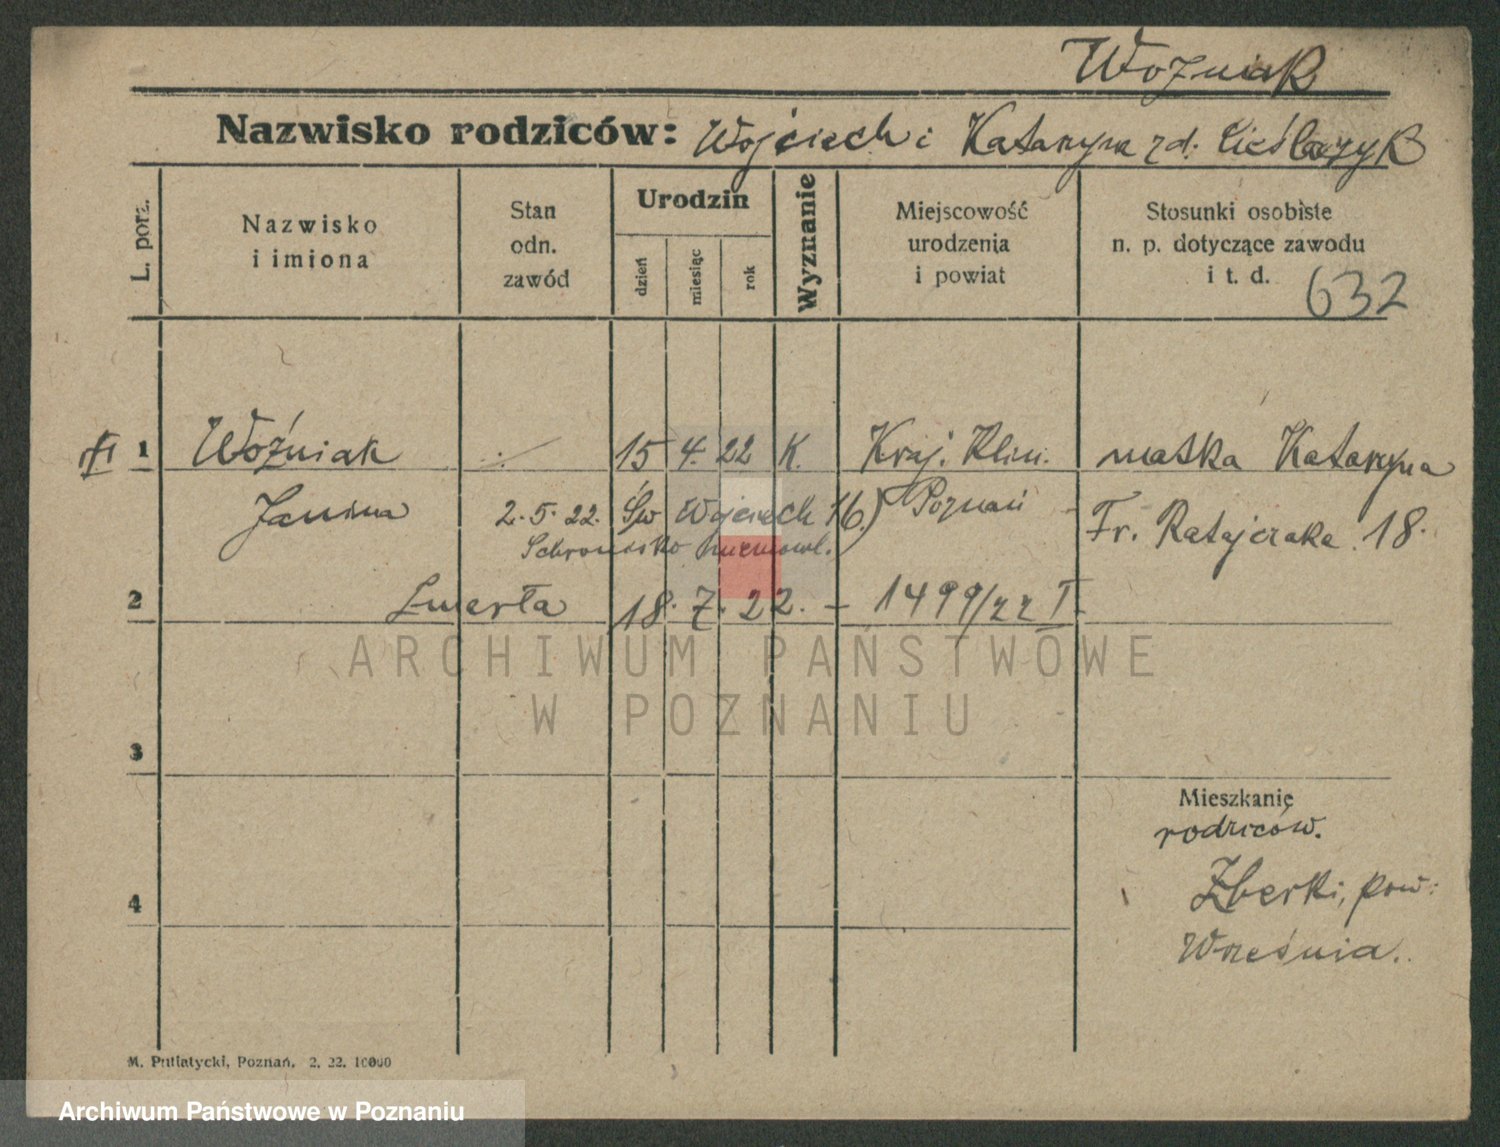 Woźniak
Nazwisko rodziców: Wojciech i Katarzyna zd. Cieślaczyk
L. porz.
Nazwisko
i imiona
Stan
odn.
zawód
Urodzin
dzień
miesiąc
rok
Wyznanie
Miejscowość
urodzenia
i powiat
Stosunki osobiste
n. p. dotyczące zawodu
i t. d. 632
1 Woźniak 15 4. 22 K. Kraj. Klin. matka Katarzyna
Janina 2. 5. 22. Św Wojciech 16) Poznań Fr. Ratajczaka 18.
Schronisko niemowl.
2 Zmarła 18. 7. 22. - 1499/22 I
ARCHIWUM PAŃSTWOWE
W POZNANIU
3
Mieszkanie
rodziców.
4 Zberki, pow:
Września.
M. Putiatycki, Poznań. 2. 22. 10000
Archiwum Państwowe w Poznaniu